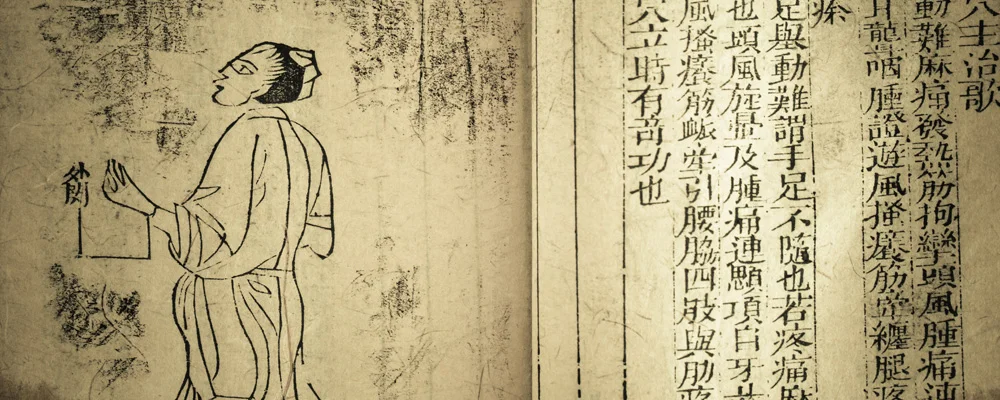 穴主治歌
動難麻痛發熱筋拘攣頭風腫痛連
耳聾咽腫證遊風搔癢筋牽纏腿疼
足舉動難謂手足不隨也若疼痛麻
也頭風旋暈及腫痛連顋項目牙
風搔癢筋脈牽引腰脇四肢與肋疼
穴立時有奇功也